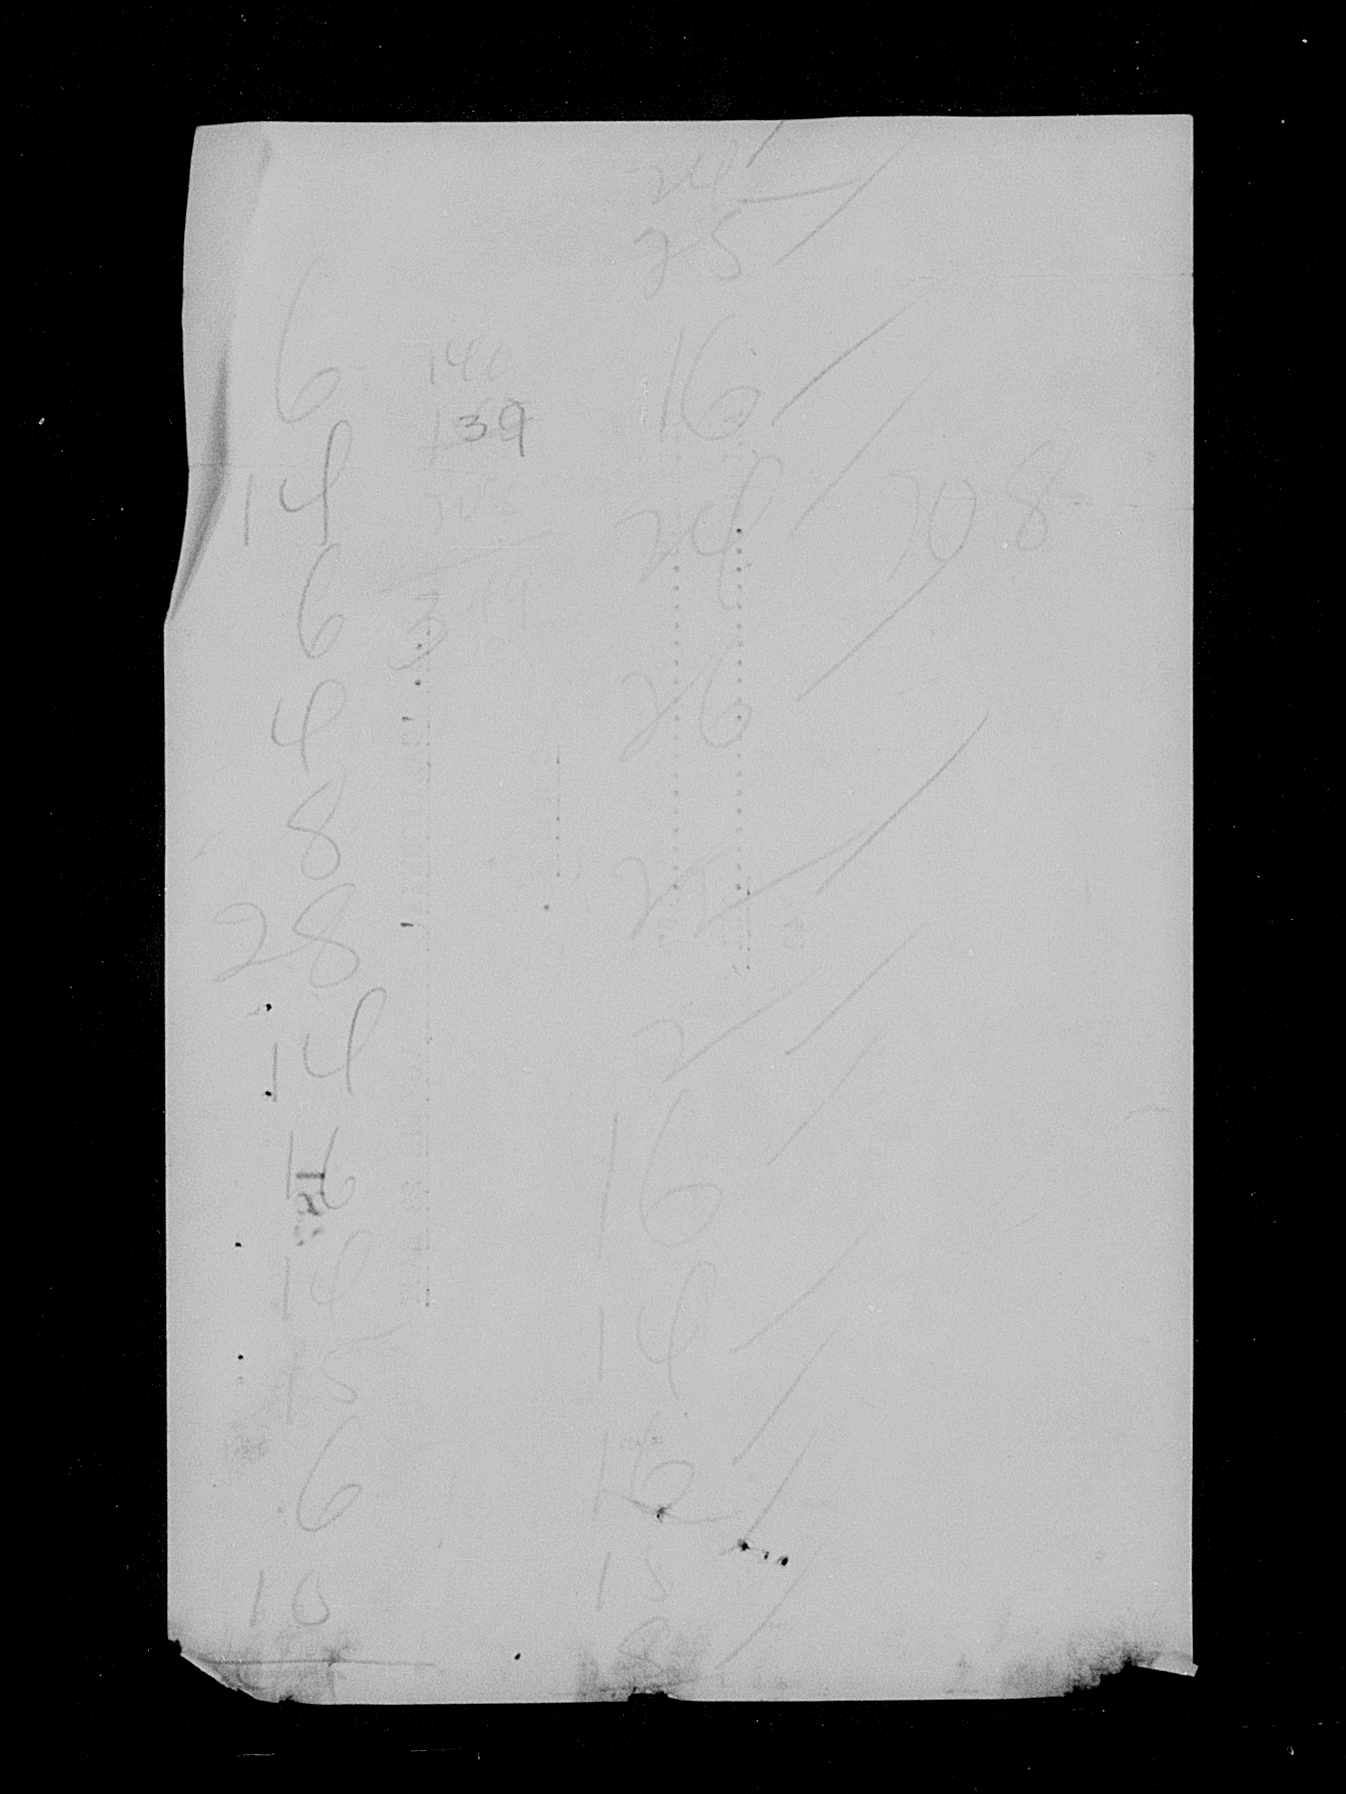 24
25
6
140
16
139
14
24
208
6
26
4
8
28
2
14
16
16
14
14
15
16
6
15
10
8